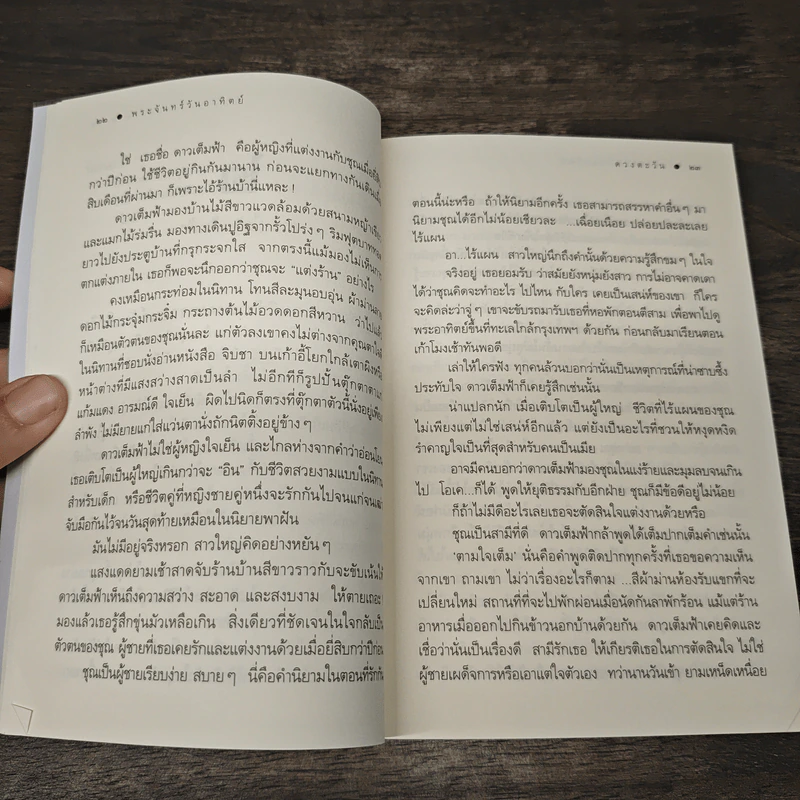 ๒๒ ● พระจันทร์วันอาทิตย์
ใช่ เธอชื่อ ดาวเต็มฟ้า คือผู้หญิงที่แต่งงานกับชุณเมื่อยี่สิบ
กว่าปีก่อน ใช้ชีวิตอยู่กินกันมานาน ก่อนจะแยกทางกันเดินเมื่อ
สิบเดือนที่ผ่านมา ก็เพราะไอ้ร้านบ้านี่แหละ !
ดาวเต็มฟ้ามองบ้านไม้สีขาวแวดล้อมด้วยสนามหญ้าเขียว
และแมกไม้ร่มรื่น มองทางเดินปูอิฐจากรั้วโปร่งๆ ริมฟุตบาททอด
ยาวไปยังประตูบ้านที่กรุกระจกใส จากตรงนี้แม้มองไม่เห็นการ
ตกแต่งภายใน เธอก็พอจะนึกออกว่าชุณจะ “แต่งร้าน” อย่างไร
คงเหมือนกระท่อมในนิทาน โทนสีละมุนอบอุ่น ผ้าม่านลาย
ดอกไม้กระจุ๋มกระจิ๋ม กระถางต้นไม้อวดดอกสีหวาน ว่าไปแล้ว
ก็เหมือนตัวตนของชุณนั่นละ แก่ตัวลงเขาคงไม่ต่างจากคุณตาใจดี
ในนิทานที่ชอบนั่งอ่านหนังสือ จิบชา บนเก้าอี้โยกใกล้เตาผิงหรือ
หน้าต่างที่มีแสงสว่างสาดเป็นลำ ไม่อีกทีก็รูปปั้นตุ๊กตาตาแก่
แก้มแดง อารมณ์ดี ใจเย็น ผิดไปนิดก็ตรงที่ตุ๊กตาตัวนี้นั่งอยู่เพียง
ลำพัง ไม่มียายแก่ใส่แว่นตานั่งถักนิตติ้งอยู่ข้างๆ
ดาวเต็มฟ้าไม่ใช่ผู้หญิงใจเย็น และไกลห่างจากคำว่าอ่อนโยน
เธอเติบโตเป็นผู้ใหญ่เกินกว่าจะ “อิน” กับชีวิตสวยงามแบบในนิทาน
สำหรับเด็ก หรือชีวิตคู่ที่หญิงชายคู่หนึ่งจะรักกันไปจนแก่จนเฒ่า
จับมือกันไว้จนวันสุดท้ายเหมือนในนิยายพาฝัน
มันไม่มีอยู่จริงหรอก สาวใหญ่คิดอย่างหยันๆ
แสงแดดยามเช้าสาดจับร้านบ้านสีขาวราวกับจะขับเน้นให้
ดาวเต็มฟ้าเห็นถึงความสว่าง สะอาด และสงบงาม ให้ตายเถอะ
มองแล้วเธอรู้สึกขุ่นมัวเหลือเกิน สิ่งเดียวที่ชัดเจนในใจกลับเป็น
ตัวตนของชุณ ผู้ชายที่เธอเคยรักและแต่งงานด้วยเมื่อยี่สิบกว่าปีก่อน
ชุณเป็นผู้ชายเรียบง่าย สบายๆ นี่คือคำนิยามในตอนที่รักกัน
ดวงตะวัน ● ๒๓
ตอนนี้น่ะหรือ ถ้าให้นิยามอีกครั้ง เธอสามารถสรรหาคำอื่นๆ มา
นิยามชุณได้อีกไม่น้อยเชียวละ ...เฉื่อยเนือย ปล่อยปละละเลย
ไร้แผน
อา...ไร้แผน สาวใหญ่นึกถึงคำนั้นด้วยความรู้สึกขมๆ ในใจ
จริงอยู่ เธอยอมรับ ว่าสมัยยังหนุ่มยังสาว การไม่อาจคาดเดา
ได้ว่าชุณคิดจะทำอะไร ไปไหน กับใคร เคยเป็นเสน่ห์ของเขา ก็ใคร
จะคิดล่ะว่าจู่ๆ เขาจะขับรถมารับเธอที่หอพักตอนตีสาม เพื่อพาไปดู
พระอาทิตย์ขึ้นที่ทะเลใกล้กรุงเทพฯ ด้วยกัน ก่อนกลับมาเรียนตอน
เก้าโมงเช้าทันพอดี
เล่าให้ใครฟัง ทุกคนล้วนบอกว่านั่นเป็นเหตุการณ์ที่น่าซาบซึ้ง
ประทับใจ ดาวเต็มฟ้าก็เคยรู้สึกเช่นนั้น
น่าแปลกนัก เมื่อเติบโตเป็นผู้ใหญ่ ชีวิตที่ไร้แผนของชุณ
ไม่เพียงแต่ไม่ใช่เสน่ห์อีกแล้ว แต่ยังเป็นอะไรที่ชวนให้หงุดหงิด
รำคาญใจเป็นที่สุดสำหรับคนเป็นเมีย
อาจมีคนบอกว่าดาวเต็มฟ้ามองชุณในแง่ร้ายและมุมลบจนเกิน
ไป โอเค...ก็ได้ พูดให้ยุติธรรมกับอีกฝ่าย ชุณก็มีข้อดีอยู่ไม่น้อย
ก็ถ้าไม่มีดีอะไรเลยเธอจะตัดสินใจแต่งงานด้วยหรือ
ชุณเป็นสามีที่ดี ดาวเต็มฟ้ากล้าพูดได้เต็มปากเต็มคำเช่นนั้น
‘ตามใจเต็ม’ นั่นคือคำพูดติดปากทุกครั้งที่เธอขอความเห็น
จากเขา ถามเขา ไม่ว่าเรื่องอะไรก็ตาม ...สีผ้าม่านห้องรับแขกที่จะ
เปลี่ยนใหม่ สถานที่ที่จะไปพักผ่อนเมื่อนัดกันลาพักร้อน แม้แต่ร้าน
อาหารเมื่อออกไปกินข้าวนอกบ้านด้วยกัน ดาวเต็มฟ้าเคยคิดและ
เชื่อว่านั่นเป็นเรื่องดี สามีรักเธอ ให้เกียรติเธอในการตัดสินใจ ไม่ใช่
ผู้ชายเผด็จการหรือเอาแต่ใจตัวเอง ทว่านานวันเข้า ยามเหน็ดเหนื่อย